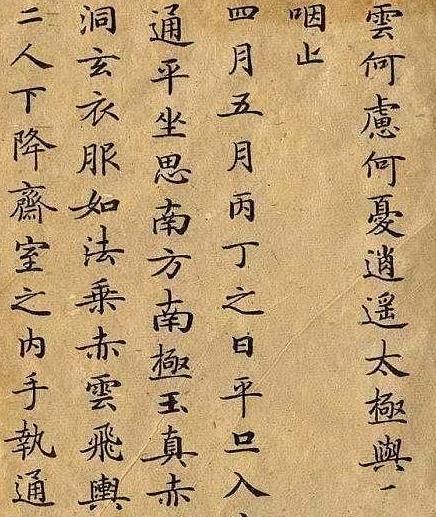 雲何慮何憂逍遥太極輿
咽止
四月五月丙丁之日平旦入
通平坐思南方南極玉真赤
洞玄衣服如法乗赤雲飛輿
二人下降齋室之内手執通